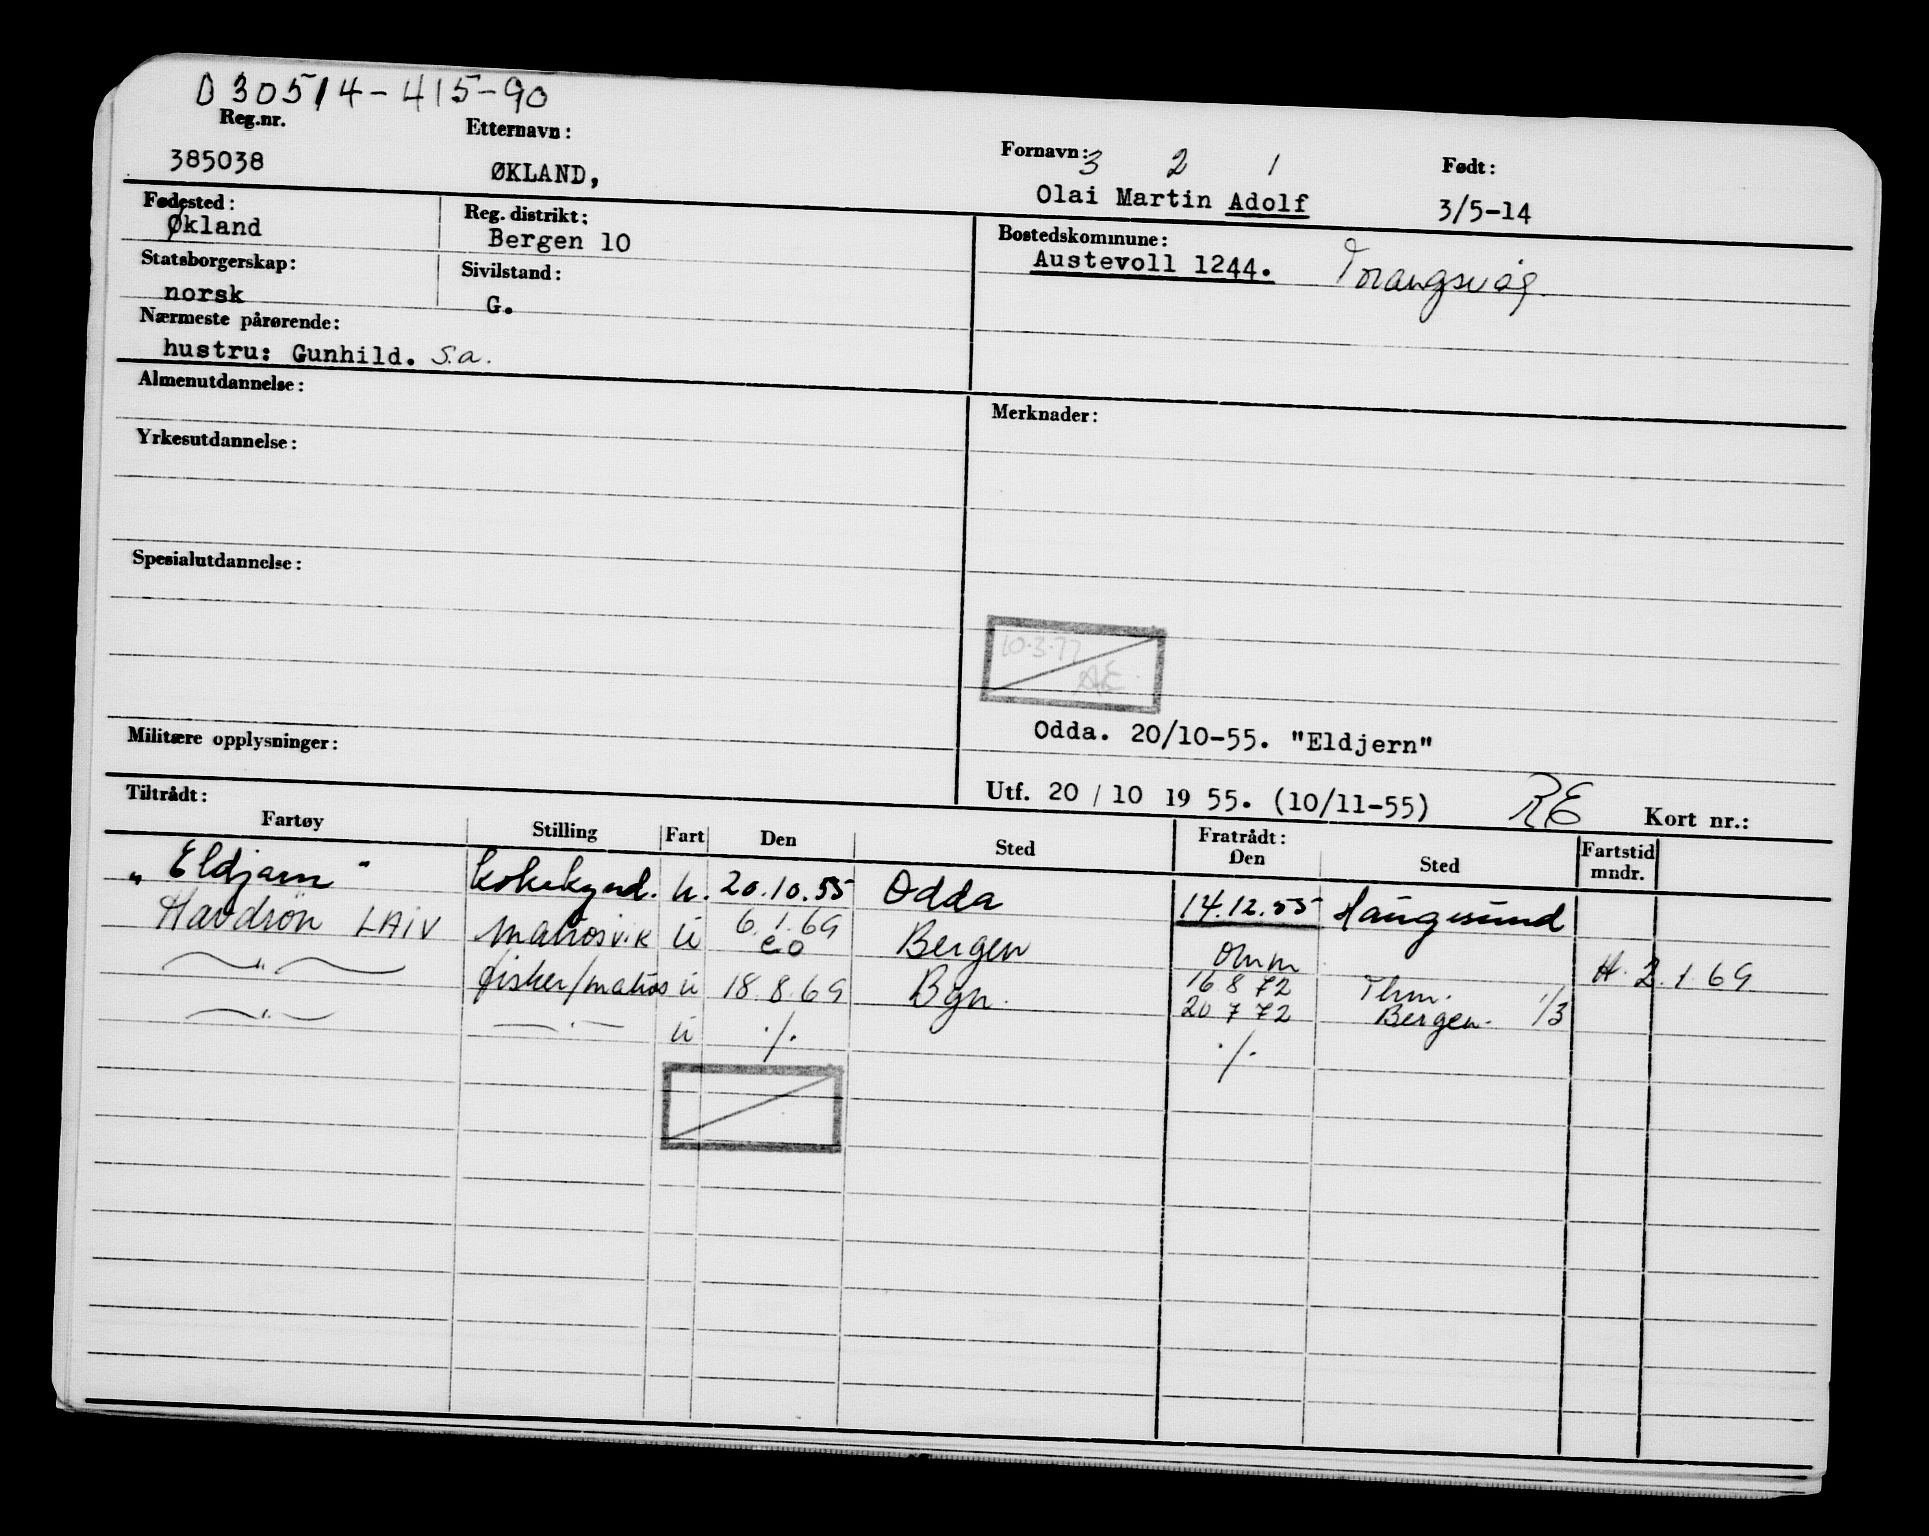 D 30514-415-90
Reg.nr. Etternavn: Fornavn: 3 2 1 Født:
385038 ØKLAND, Olai Martin Adolf 3/5-14
Fødested: Reg. distrikt: Bostedskommune:
Økland Bergen 10 Austevoll 1244. Torangsvåg.
Statsborgerskap: Sivilstand:
norsk G.
Nærmeste pårørende:
hustru: Gunhild. s.a.
Almenutdannelse: Merknader:
Yrkesutdannelse:
Spesialutdannelse:
10.3.77
AE
Militære opplysninger: Odda. 20/10-55. "Eldjern"
Utf. 20 / 10 19 55. (10/11-55) RE Kort nr.:
Tiltrådt: Fratrådt:
Fartøy Stilling Fart Den Sted Den Sted Fartstid mndr.
„Eldjarn" kokskynd. u. 20.10.55 Odda 14.12.55 Haugesund
Havdrøn LAIV matros v.k u 6.1.69 Bergen omm H. 2.1.69
eo
fisker/matros u 18.8.69 Bgn. 16 8 72
20 7 72 Bergen. 1/3
u ./. ./.